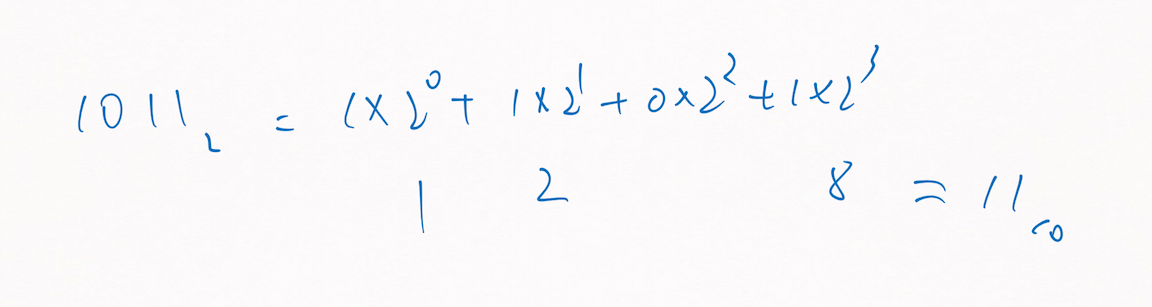 1011₂ = 1×2⁰ + 1×2¹ + 0×2² + 1×2³
1 2 8 = 11₁₀